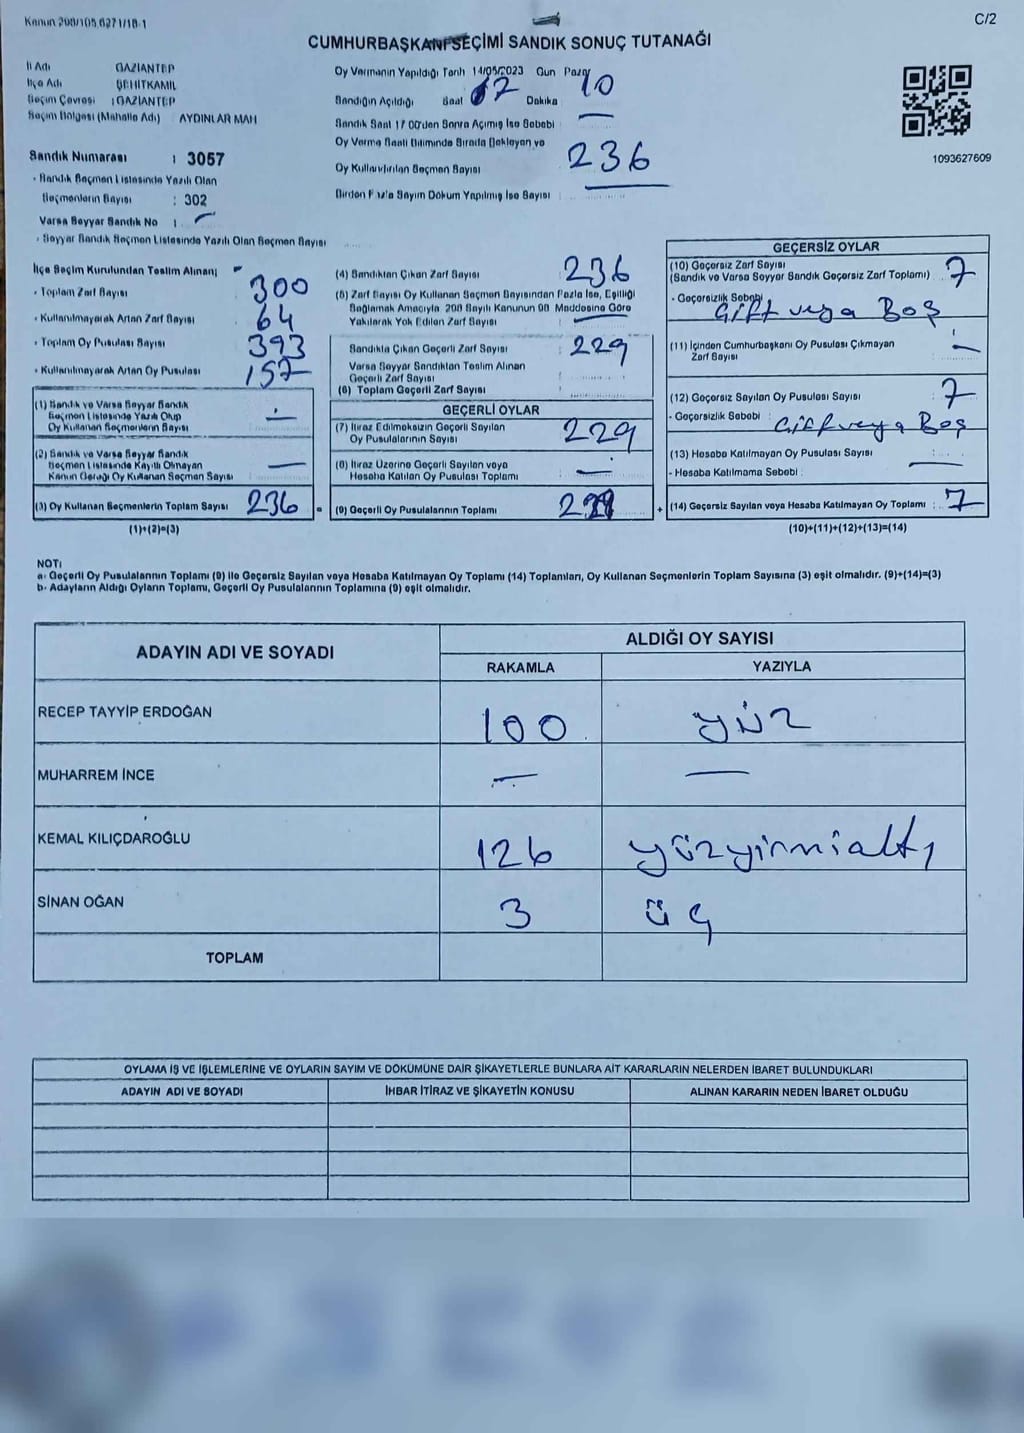 Kanun 298/105,6271/18-1
C/2
CUMHURBAŞKANI SEÇİMİ SANDIK SONUÇ TUTANAĞI
İl Adı GAZİANTEP
İlçe Adı ŞEHİTKAMİL
Seçim Çevresi : GAZİANTEP
Seçim Bölgesi (Mahalle Adı) AYDINLAR MAH
Sandık Numarası : 3057
- Sandık Seçmen Listesinde Yazılı Olan
Seçmenlerin Sayısı : 302
Varsa Seyyar Sandık No : –
- Seyyar Sandık Seçmen Listesinde Yazılı Olan Seçmen Sayısı
Oy Vermenin Yapıldığı Tarih 14/05/2023 Gün Pazar
Sandığın Açıldığı Saat 17 Dakika 10
Sandık Saat 17 00'den Sonra Açılmış İse Sebebi —
Oy Verme Saati Bitiminde Sırada Bekleyen ve
Oy Kullandırılan Seçmen Sayısı 236
Birden Fazla Sayım Döküm Yapılmış İse Sayısı —
1093627609
İlçe Seçim Kurulundan Teslim Alınan;
- Toplam Zarf Sayısı 300
- Kullanılmayarak Artan Zarf Sayısı 64
- Toplam Oy Pusulası Sayısı 393
- Kullanılmayarak Artan Oy Pusulası 157
(1) Sandık ve Varsa Seyyar Sandık
Seçmen Listesinde Yazılı Olup
Oy Kullanan Seçmenlerin Sayısı —
(2) Sandık ve Varsa Seyyar Sandık
Seçmen Listesinde Kayıtlı Olmayan
Kanun Gereği Oy Kullanan Seçmen Sayısı —
(3) Oy Kullanan Seçmenlerin Toplam Sayısı 236 =
(1)+(2)=(3)
(4) Sandıktan Çıkan Zarf Sayısı 236
(5) Zarf Sayısı Oy Kullanan Seçmen Sayısından Fazla İse, Eşitliği
Sağlamak Amacıyla 298 Sayılı Kanunun 98 Maddesine Göre
Yakılarak Yok Edilen Zarf Sayısı —
Sandıkta Çıkan Geçerli Zarf Sayısı 229
Varsa Seyyar Sandıktan Teslim Alınan
Geçerli Zarf Sayısı
(6) Toplam Geçerli Zarf Sayısı
GEÇERLİ OYLAR
(7) İtiraz Edilmeksizin Geçerli Sayılan
Oy Pusulalarının Sayısı 229
(8) İtiraz Üzerine Geçerli Sayılan veya
Hesaba Katılan Oy Pusulası Toplamı —
(9) Geçerli Oy Pusulalarının Toplamı 229 +
GEÇERSİZ OYLAR
(10) Geçersiz Zarf Sayısı
(Sandık ve Varsa Seyyar Sandık Geçersiz Zarf Toplamı) 7
- Geçersizlik Sebebi Çift veya Boş
(11) İçinden Cumhurbaşkanı Oy Pusulası Çıkmayan
Zarf Sayısı —
(12) Geçersiz Sayılan Oy Pusulası Sayısı 7
- Geçersizlik Sebebi : Çift veya Boş
(13) Hesaba Katılmayan Oy Pusulası Sayısı —
- Hesaba Katılmama Sebebi
(14) Geçersiz Sayılan veya Hesaba Katılmayan Oy Toplamı : 7
(10)+(11)+(12)+(13)=(14)
NOT:
a- Geçerli Oy Pusulalarının Toplamı (9) ile Geçersiz Sayılan veya Hesaba Katılmayan Oy Toplamı (14) Toplamları, Oy Kullanan Seçmenlerin Toplam Sayısına (3) eşit olmalıdır. (9)+(14)=(3)
b- Adayların Aldığı Oyların Toplamı, Geçerli Oy Pusulalarının Toplamına (9) eşit olmalıdır.
ADAYIN ADI VE SOYADI ALDIĞI OY SAYISI
RAKAMLA YAZIYLA
RECEP TAYYİP ERDOĞAN 100 yüz
MUHARREM İNCE — —
KEMAL KILIÇDAROĞLU 126 yüzyirmialtı
SİNAN OĞAN 3 üç
TOPLAM
OYLAMA İŞ VE İŞLEMLERİNE VE OYLARIN SAYIM VE DÖKÜMÜNE DAİR ŞİKAYETLERLE BUNLARA AİT KARARLARIN NELERDEN İBARET BULUNDUKLARI
ADAYIN ADI VE SOYADI İHBAR İTİRAZ VE ŞİKAYETİN KONUSU ALINAN KARARIN NEDEN İBARET OLDUĞU